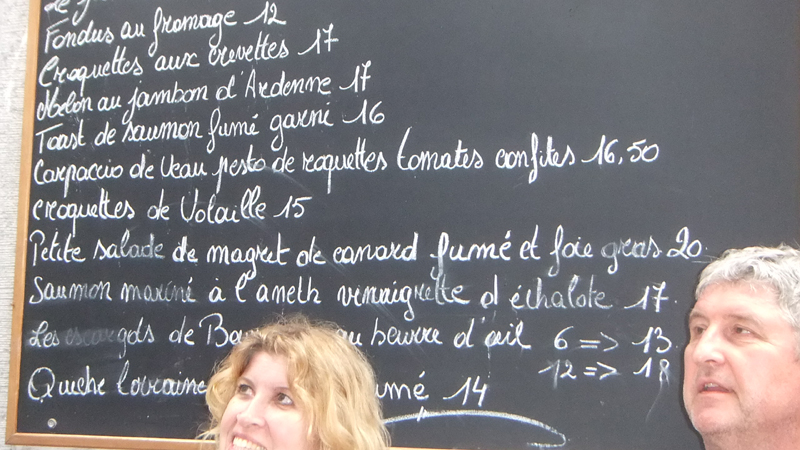 Fondus au fromage 12
Croquettes aux crevettes 17
Melon au jambon d'Ardenne 17
Toast de saumon fumé garni 16
Carpaccio de Veau pesto de roquettes tomates confites 16,50
croquettes de Volaille 15
Petite salade de magret de canard fumé et foie gras 20
Saumon mariné à l'aneth vinaigrette d'échalote 17
Les escargots de au beurre d'ail 6 => 13
12 => 18
Quiche lorraine 14